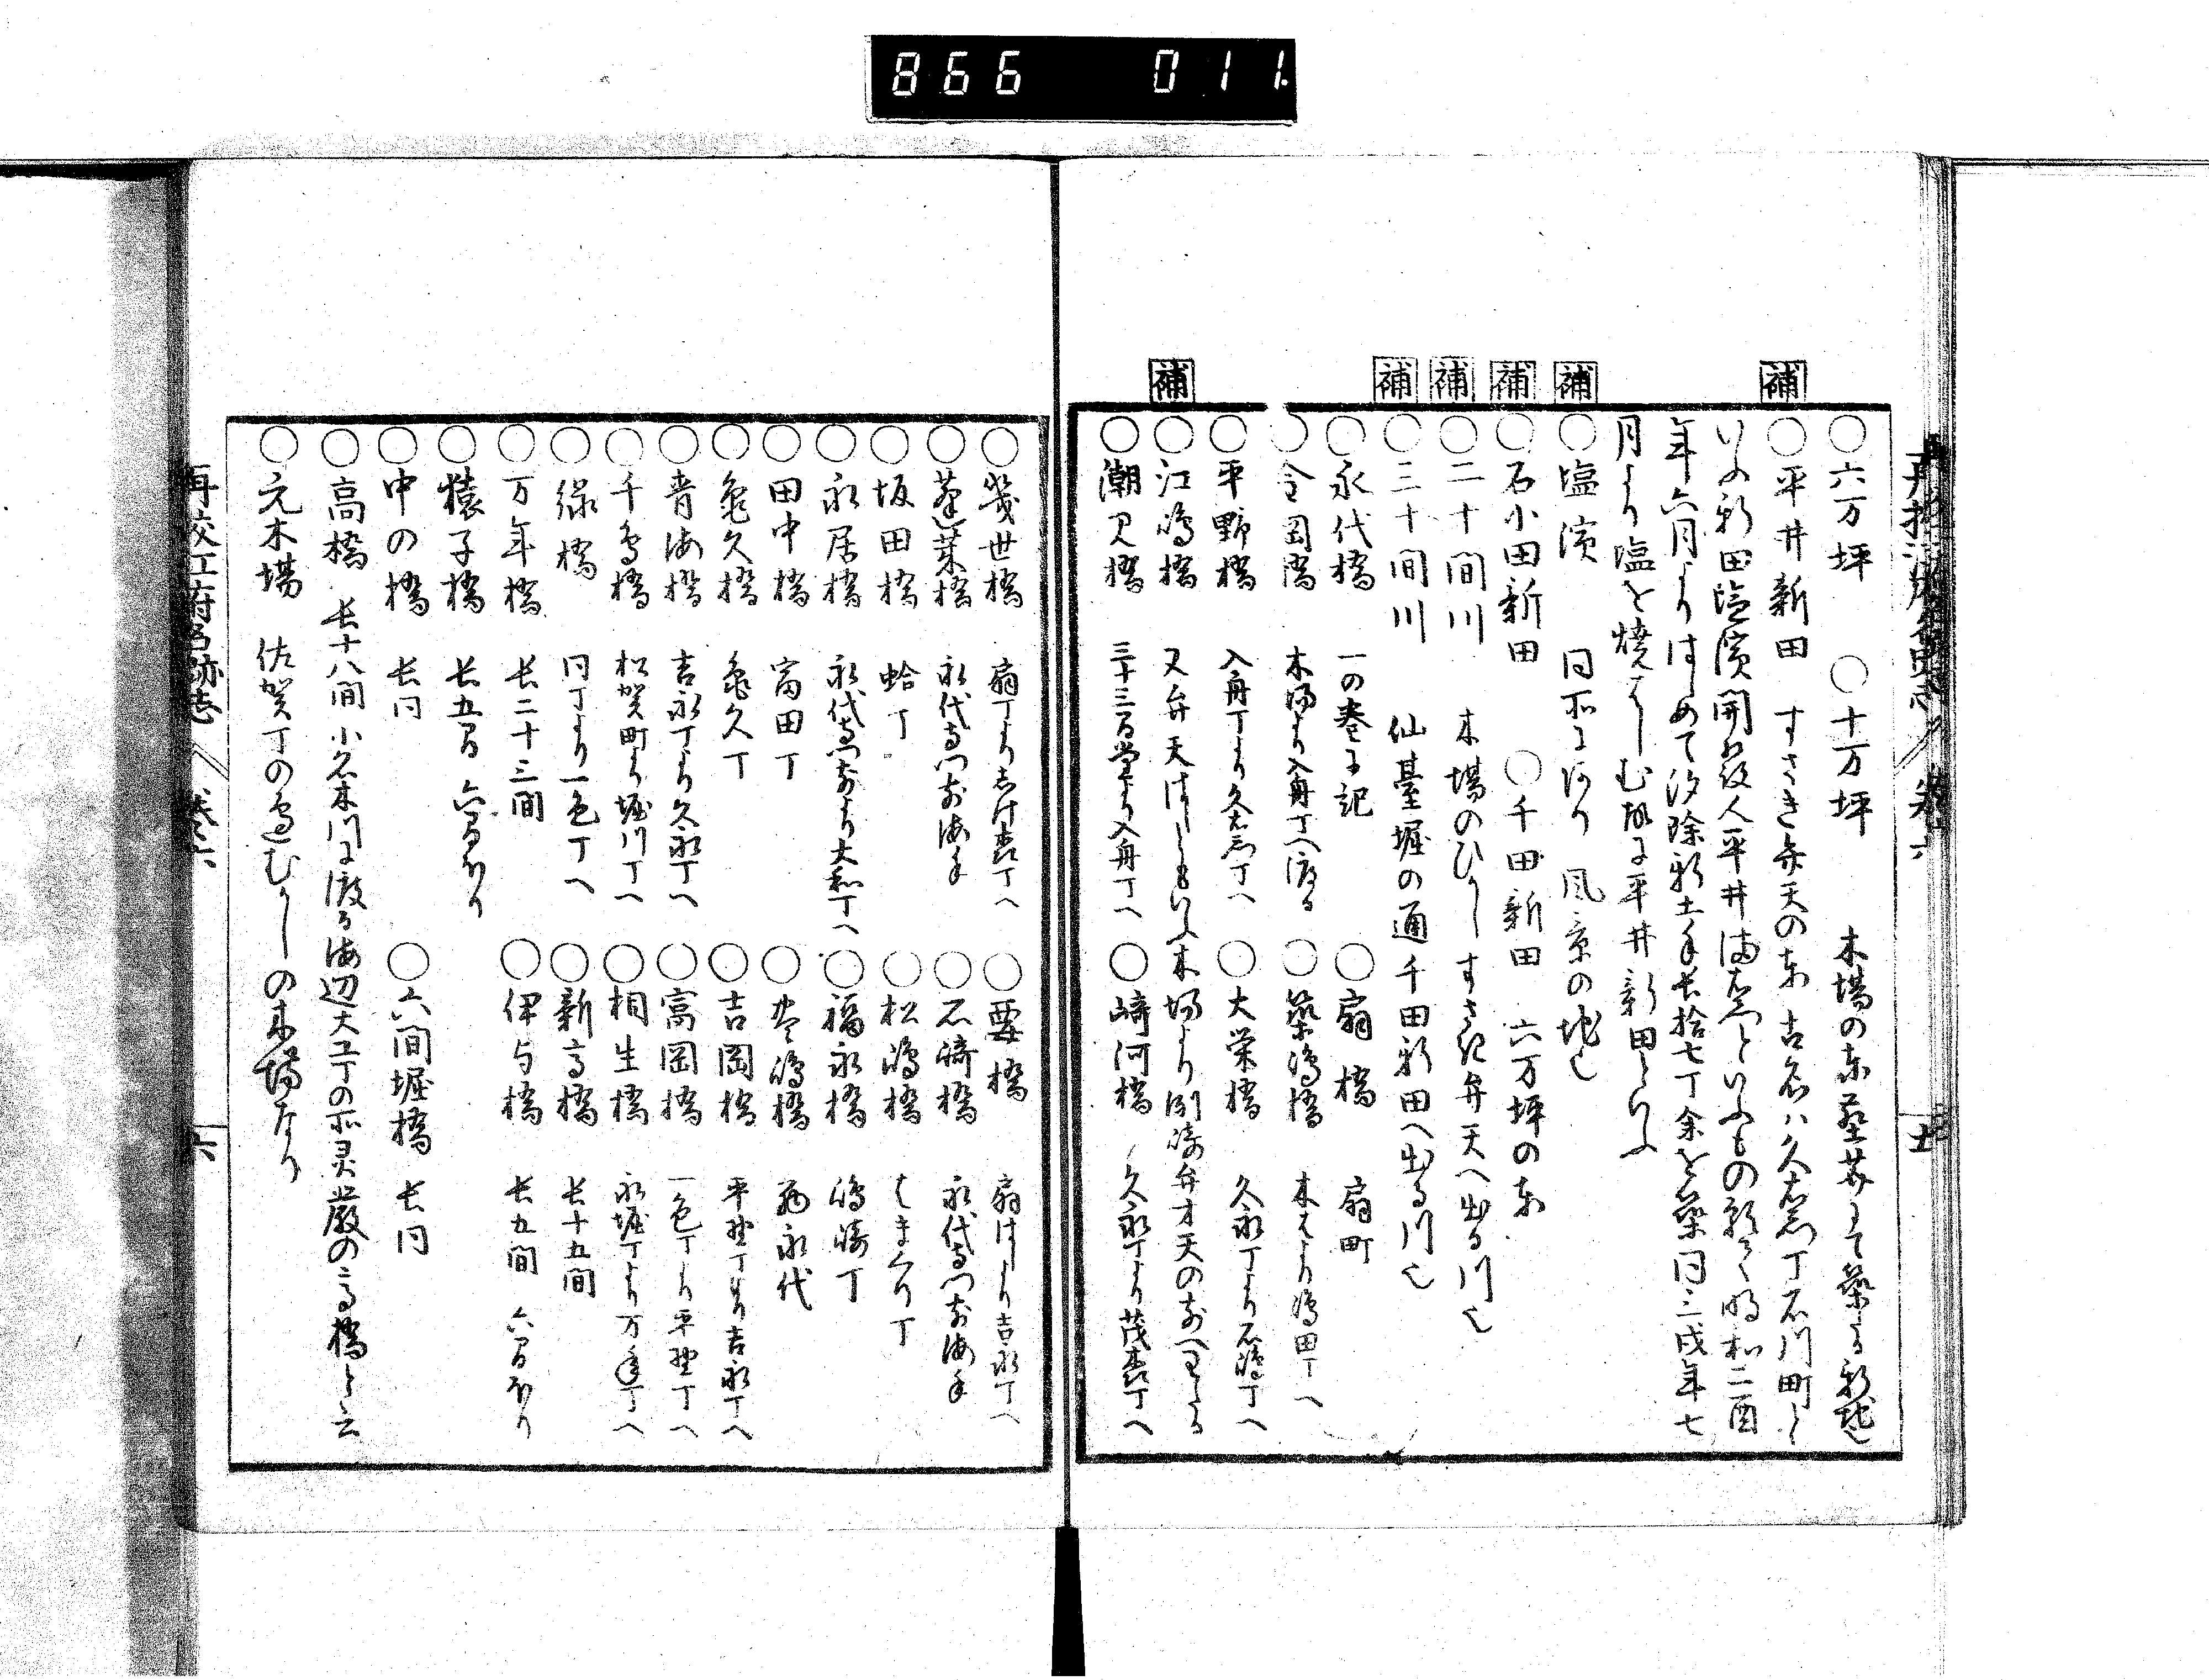 866 011
○六万坪 ○十万坪 木場の東 芥にて築る新地也
補 ○平井新田 すさき弁天の東 古名ハ久右衛門丁石川町と
いふ新田塩濱開発人平井満右衛門といふもの願て明和二酉
年六月よりはしめて汐除新土手長拾七丁余を築同三戌年七
月より塩を焼しむ故に平井新田といふ
補 ○塩濱 同所にあり 風景の地也
補 ○石小田新田 ○千田新田 六万坪の東
補 ○二十間川 木場のひかしすさき弁天へ出る川也
補 ○三十間川 仙臺堀の通千田新田へ出る川也
○永代橋 一の巻に記 ○扇橋 扇町
岡橋 木場より入舟丁へ渡る ○築嶋橋 木より嶋田丁へ
○平野橋 入舟丁より久右衛門丁へ ○大栄橋 久永丁より石嶋丁へ
補 ○江嶋橋 又弁天はしともいふ木場より洲崎弁才天の前へわたる
○潮見橋 三十三間堂より入舟丁へ ○崎河橋 久永丁より茂森丁へ
○幾世橋 扇丁より 丁へ ○要橋 扇はしより吉永丁へ
○蓬莱橋 永代寺門前海手 ○石崎橋 永代寺門前海手
○坂田橋 蛤丁 ○松嶋橋 はまくり丁
○永居橋 永代寺門前より大和丁へ ○福永橋 嶋崎丁
○田中橋 富田丁 嶋橋 永代
○亀久橋 亀久丁 ○吉岡橋 平野丁より吉永丁へ
○青海橋 吉永丁より久永丁へ ○富岡橋 一色丁より平野丁へ
○千鳥橋 松賀町より堀川丁へ ○相生橋 永堀丁より万年丁へ
○緑橋 同丁より一色丁へ ○新高橋 長十五間
○万年橋 長二十三間 ○伊与橋 長五間 六間ほり
○猿子橋 長五間 六間ほり
○中の橋 長同 ○六間堀橋 長同
○高橋 長十八間 小名木川に渡る海辺大工丁の所霊巌の高橋と云
○元木場 佐賀丁の辺むかしの木場なり
再校江府名跡志 巻之六 六